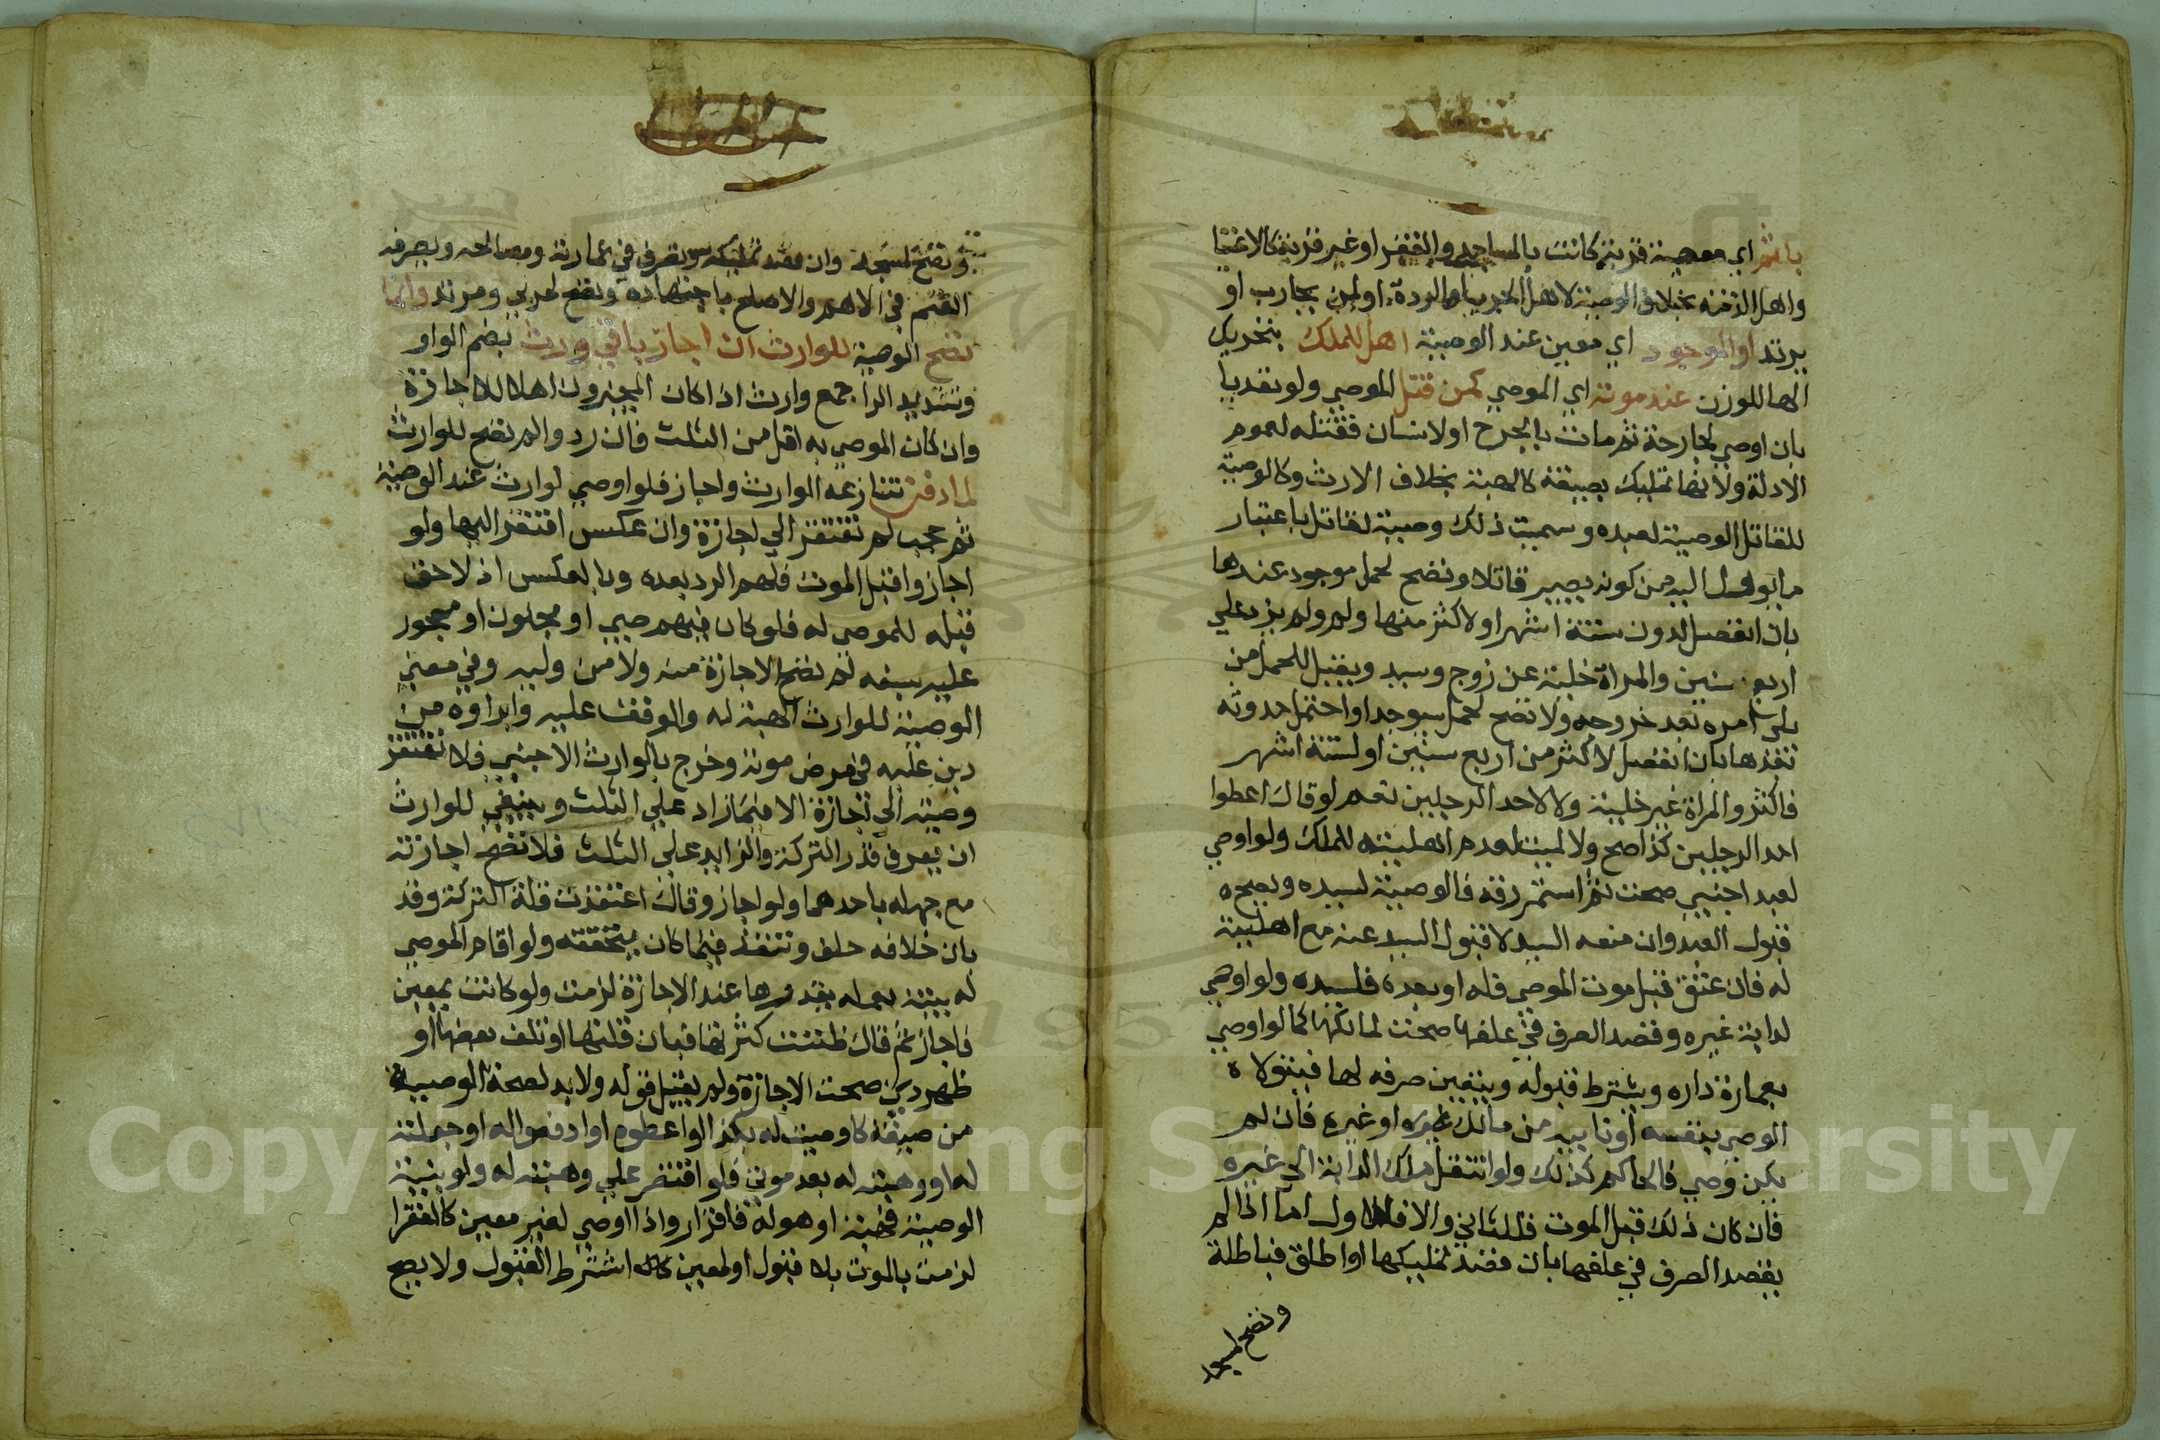 باثم اي معصية قربة كانت بالمساجد والفقرا او غير قربة كالاغنيا
واهل الذمة بخلاف الوصية لاهل الحرب او الردة او لمن يحارب او
يرتد او الموجود اي معين عند الوصية اهل للملك بتحريك
الها للوزن عند موته اي الموصي كمن قتل الموصي ولو تعديا
بان اوصي لجارحة ثم مات بالجرح او لانسان فقتله لعموم
الادلة ولانها تمليك بصيغة كالهبة بخلاف الارث وكالوصية
للقاتل الوصية لعبده وسميت ذلك وصية لقاتل باعتبار
ما يوول اليه من كونه يصير قاتلا وتصح لحمل موجود عندها
بان انفصل لدون ستة اشهر او لاكثر منها ولم يزد علي
اربع سنين والمراة خلية عن زوج وسيد ويقبل للحمل من
يلي امره بعد خروجه ولا تصح لحمل سيوجد او احتمل حدوثه
بعدها بان انفصل لاكثر من اربع سنين او لستة اشهر
فاكثر والمراة غير خلية ولا لاحد الرجلين نعم لو قال اعطوا
احد الرجلين كذا صح ولا لميت لعدم اهليته للملك ولو اوصي
لعبد اجنبي صحت ثم استمر رقه فالوصية لسيده ويصح
قبول العبد وان منعه السيد لا قبول السيد عنه مع اهلية
له فان عتق قبل موت الموصي فله او بعده فلسيده ولو اوصي
لدابة غيره وقصد الصرف في علفها صحت لمالكها كما لو اوصي
بعمارة داره ويشترط قبوله ويتعين صرفه لها فيتولاه
الوصي بنفسه او نايبه من مالك او غيره فان لم
يكن وصي فالحاكم كذلك ولو انتقل ملك الدابة الي غيره
فان كان ذلك قبل الموت فللثاني والا فللاول اما اذا لم
يقصد الصرف في علفها بان قصد تمليكها او اطلق فباطلة
وتصح لمسجد
وتصح لمسجد وان قصد تمليكه وتصرف في عمارته ومصالحه ويصرفه
القيم في الاهم والاصلح باجتهاده وتصح لحربي ومرتد وانما
تصح الوصية للوارث ان اجاز باقي ورث بضم الواو
وتشديد الرا جمع وارث اذا كان المجيزون اهلا للاجازة
وان كان الموصي به اقل من الثلث فان ردوا لم تصح للوارث
لما دفن تنازعه الوارث واجاز فلو اوصي لوارث عند الوصية
ثم حجب لم تفتقر الي اجازة وان عكس افتقر اليها ولو
اجازوا قبل الموت فلهم الرد بعده وبالعكس اذ لا حق
قبله للموصي له فلو كان فيهم صبي او مجنون او محجور
عليه بسفه لم تصح الاجازة منه ولا من وليه وفي معني
الوصية للوارث الهبة له والوقف عليه وابراوه من
دين عليه في مرض موته وخرج بالوارث الاجنبي فلا تفتقر
وصيته الي اجازة الا فيما زاد علي الثلث وينبغي للوارث
ان يعرف قدر التركة والزايد علي الثلث فلا تصح اجازته
مع جهله باحدهما ولو اجاز وقال اعتقدت قلة التركة وقد
بان خلافه حلف وتنفذ فيما كان يتحققه ولو اقام الموصي
له بينة بعلمه بقدرها عند الاجازة لزمت ولو كانت بمعين
فاجاز ثم قال ظننت كثرتها فبان قلتها او تلف بعضها او
ظهر دين صحت الاجازة ولم يقبل قوله ولا بد لصحة الوصية
من صيغة كاوصيت له بكذا او اعطوه او ادفعوا له او جعلته
له او وهبته له بعد موتي فلو اقتصر علي وهبته له ولو بنية
الوصية فهبة او هو له فاقرار واذا اوصي لغير معين كالفقرا
لزمت بالموت بلا قبول او لمعين كان اشترط القبول ولا يصح